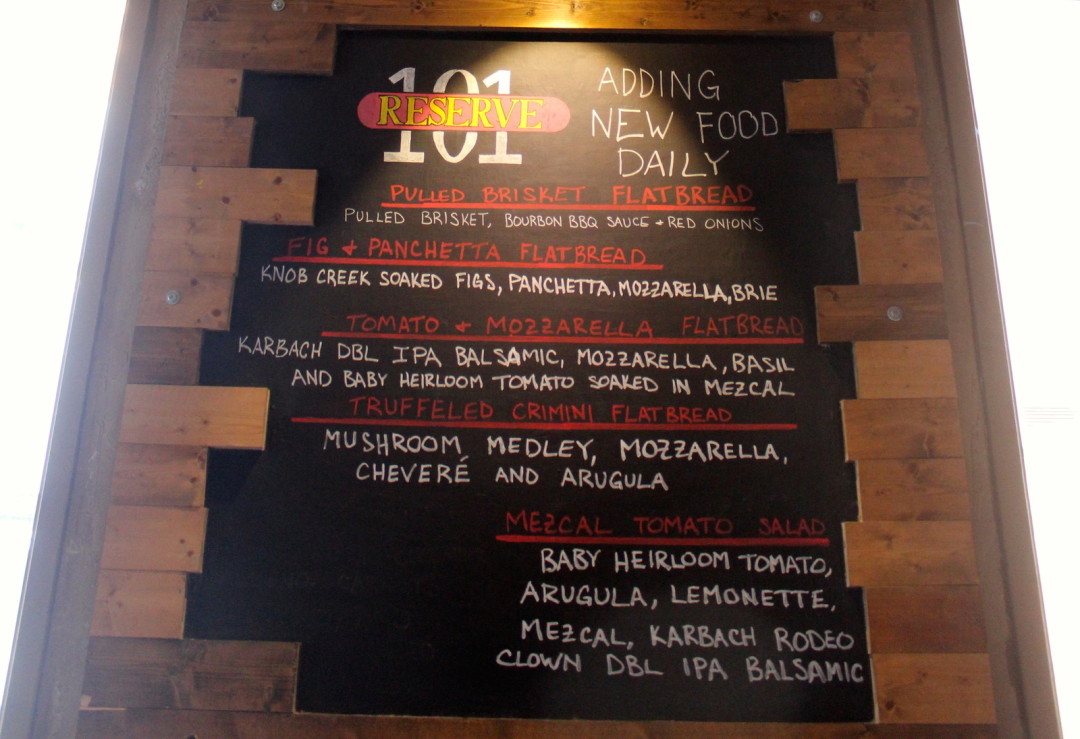 101
RESERVE
ADDING
NEW FOOD
DAILY
PULLED BRISKET FLATBREAD
PULLED BRISKET, BOURBON BBQ SAUCE + RED ONIONS
FIG & PANCHETTA FLATBREAD
KNOB CREEK SOAKED FIGS, PANCHETTA, MOZZARELLA, BRIE
TOMATO & MOZZARELLA FLATBREAD
KARBACH DBL IPA BALSAMIC, MOZZARELLA, BASIL
AND BABY HEIRLOOM TOMATO SOAKED IN MEZCAL
TRUFFELED CRIMINI FLATBREAD
MUSHROOM MEDLEY, MOZZARELLA,
CHEVERÉ AND ARUGULA
MEZCAL TOMATO SALAD
BABY HEIRLOOM TOMATO,
ARUGULA, LEMONETTE,
MEZCAL, KARBACH RODEO
CLOWN DBL IPA BALSAMIC